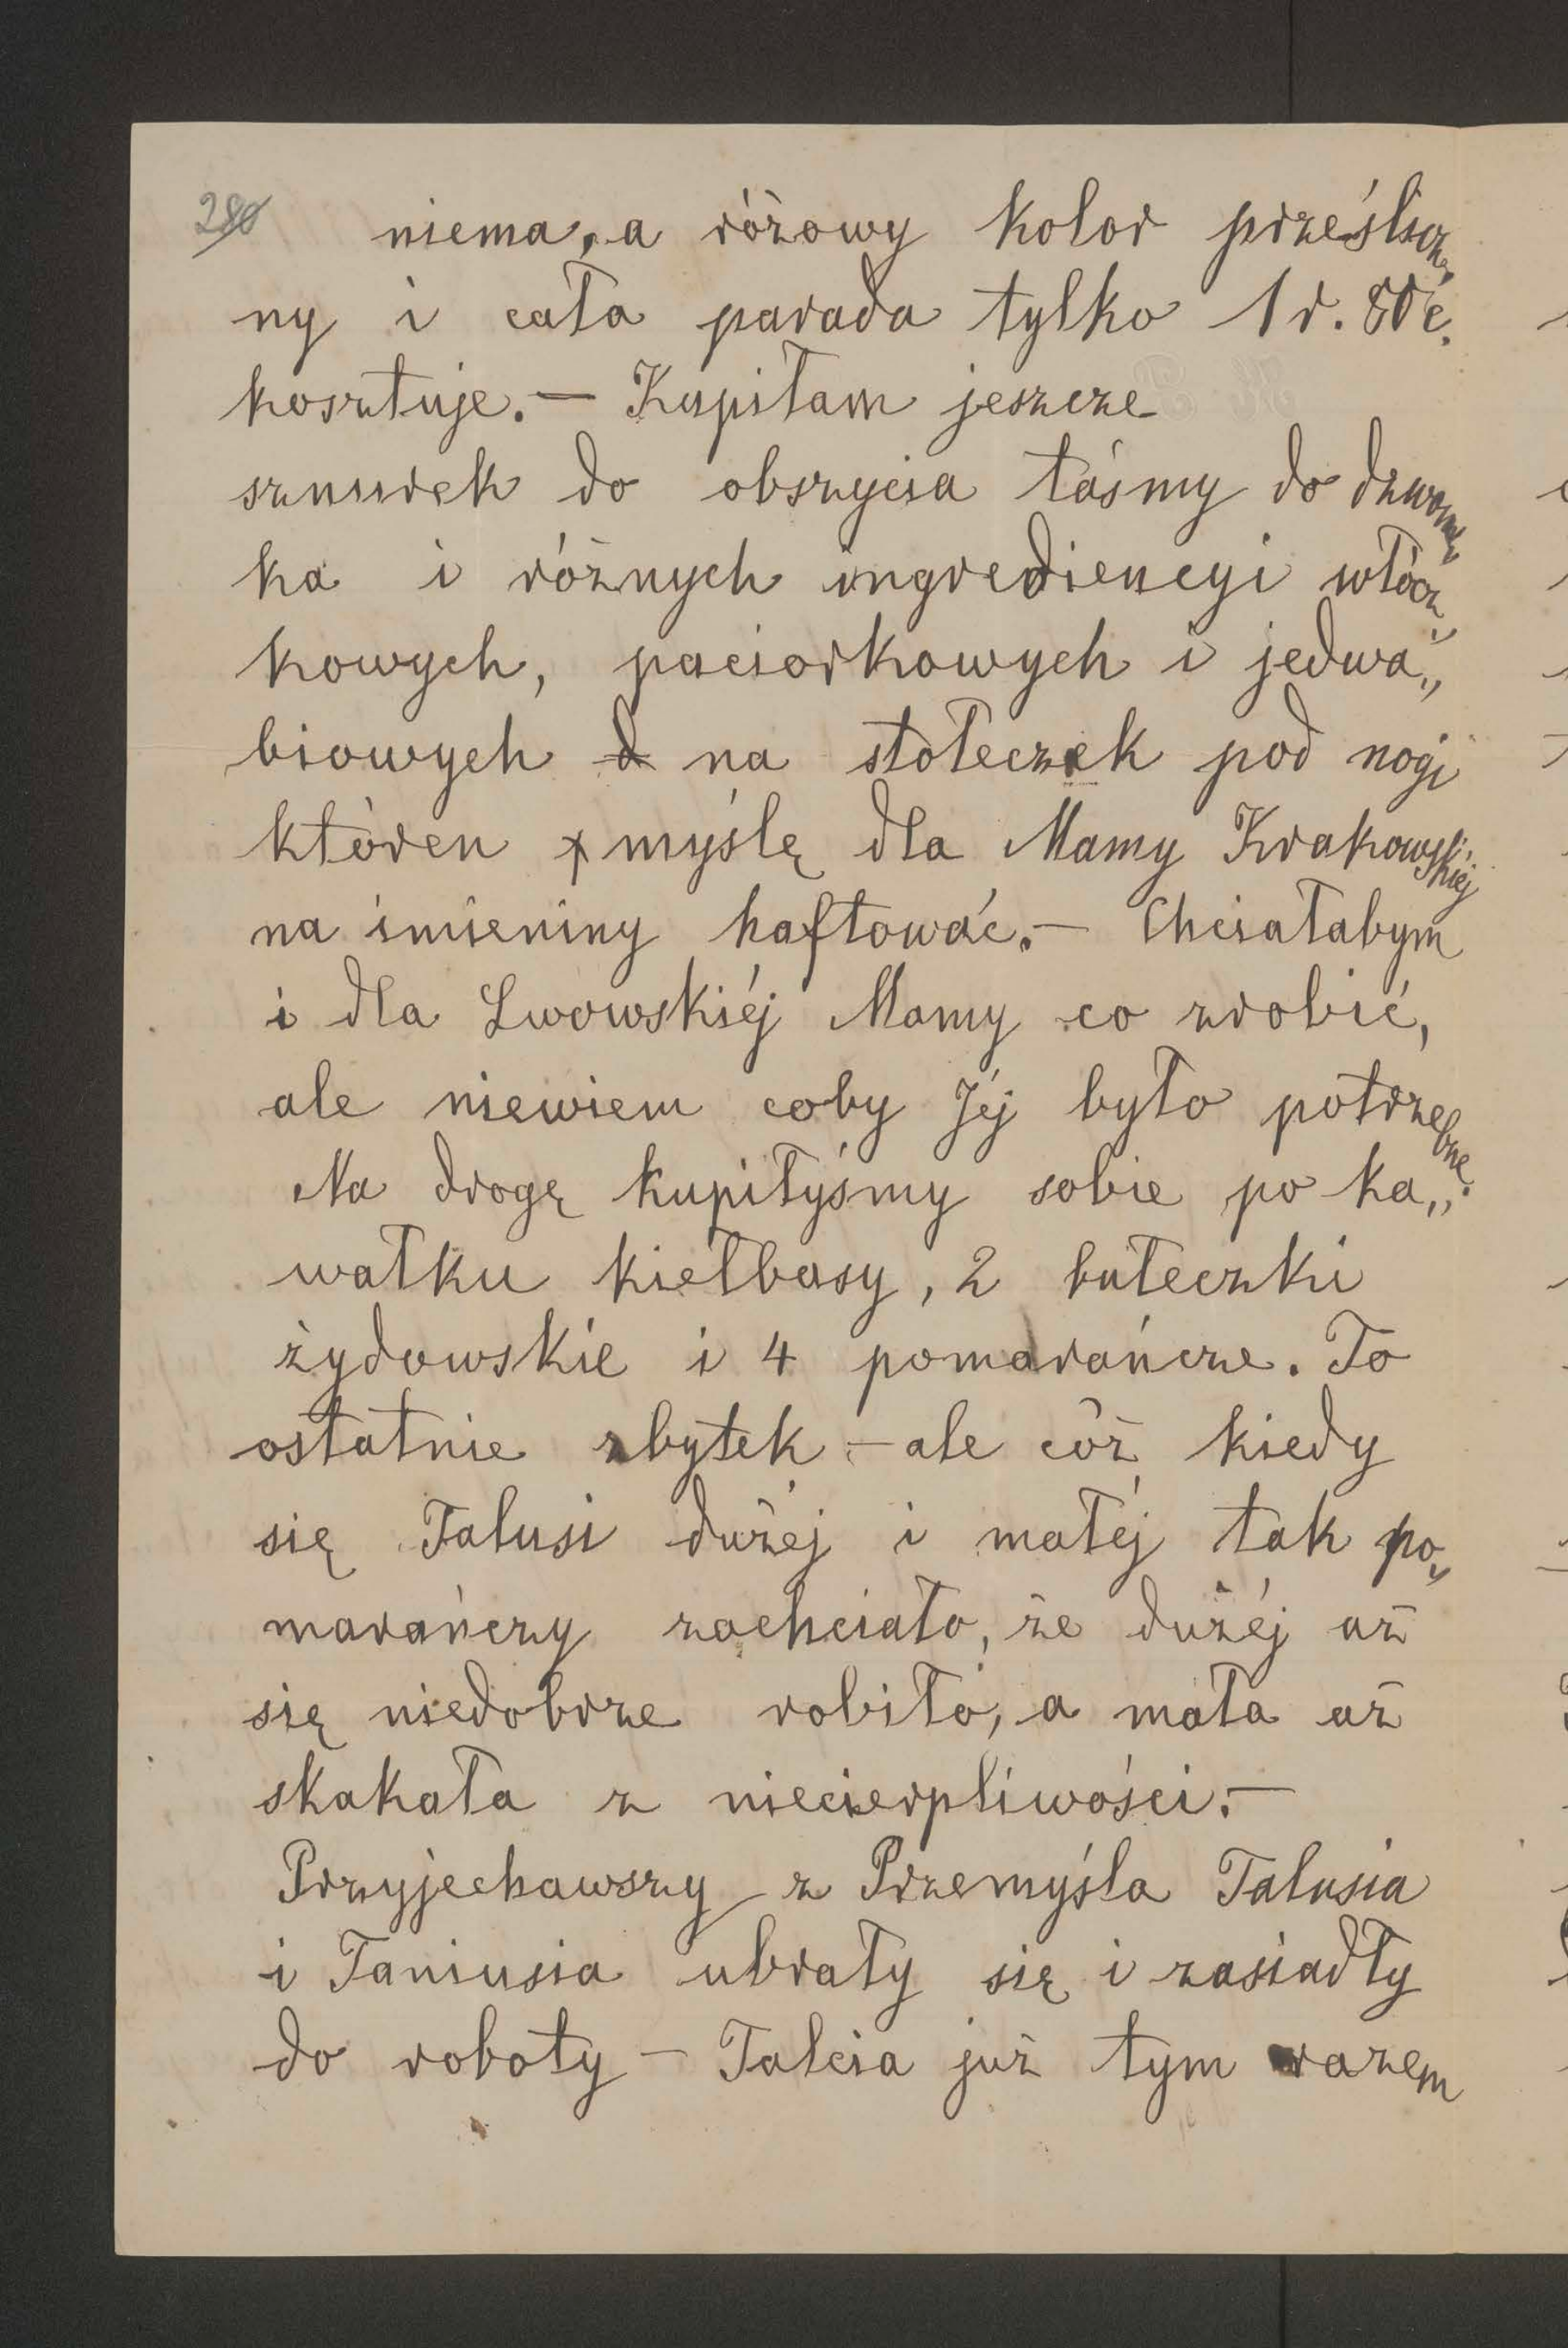 280
niema, a różowy kolor prześlicz„
ny i cała parada tylko 1 r. 80 c.
kosztuje. — Kupiłam jeszcze
sznurek do obszycia taśmy do dzwon„
ka i różnych ingrediencyi włócz„
kowych, paciorkowych i jedwa„
biowych d na stołeczek pod nogi
któren myślę dla Mamy Krakowskiéj
na imieniny haftować. — Chciałabym
i dla Lwowskiéj Mamy co zrobić,
ale niewiem coby Jéj było potrzebne.
Na drogę kupiłyśmy sobie po ka„
wałku kiełbasy, 2 bułeczki
żydowskie i 4 pomarańcze. To
ostatnie zbytek — ale cóż kiedy
się Talusi dużéj i małéj tak po„
marańczy zachciało, że dużéj aż
się niedobrze robiło, a mała aż
skakała z niecierpliwości. —
Przyjechawszy z Przemyśla Talusia
i Taniusia ubrały się i zasiadły
do roboty — Talcia już tym razem